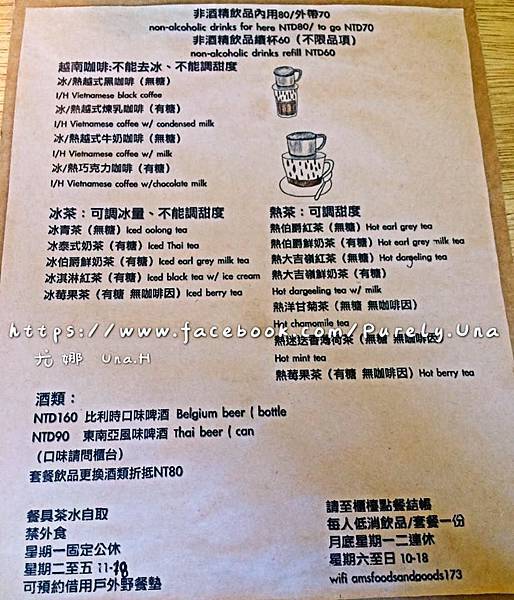 非酒精飲品內用80/外帶70
non-alcoholic drinks for here NTD80/ to go NTD70
非酒精飲品續杯60（不限品項）
non-alcoholic drinks refill NTD60
越南咖啡:不能去冰、不能調甜度
冰/熱越式黑咖啡（無糖）
I/H Vietnamese black coffee
冰/熱越式煉乳咖啡（有糖）
I/H Vietnamese coffee w/ condensed milk
冰/熱越式牛奶咖啡（無糖）
I/H Vietnamese coffee w/ milk
冰/熱巧克力咖啡（有糖）
I/H Vietnamese coffee w/chocolate milk
冰茶：可調冰量、不能調甜度
冰青茶（無糖）Iced oolong tea
冰泰式奶茶（有糖）Iced Thai tea
冰伯爵鮮奶茶（有糖）Iced earl grey milk tea
冰淇淋紅茶（有糖）Iced black tea w/ ice cream
冰莓果茶（有糖 無咖啡因）Iced berry tea
熱茶：可調甜度
熱伯爵紅茶（無糖）Hot earl grey tea
熱伯爵鮮奶茶（有糖）Hot earl grey milk tea
熱大吉嶺紅茶（無糖）Hot dargeling tea
熱大吉嶺鮮奶茶（有糖）
Hot dargeeling tea w/ milk
熱洋甘菊茶（無糖 無咖啡因）
Hot chamomile tea
熱迷迭香薄荷茶（無糖 無咖啡因）
Hot mint tea
熱莓果茶（有糖 無咖啡因）Hot berry tea
https://www.facebook.com/Purely.Una
尤娜 Una.H
酒類：
NTD160 比利時口味啤酒 Belgium beer ( bottle
NTD90 東南亞風味啤酒 Thai beer ( can
（口味請問櫃台）
套餐飲品更換酒類折抵NT80
餐具茶水自取
禁外食
星期一固定公休
星期二至五 11-18
可預約借用戶外野餐墊
請至櫃檯點餐結帳
每人低消飲品/套餐一份
月底星期一二連休
星期六至日 10-18
wifi amsfoodsandgoods173